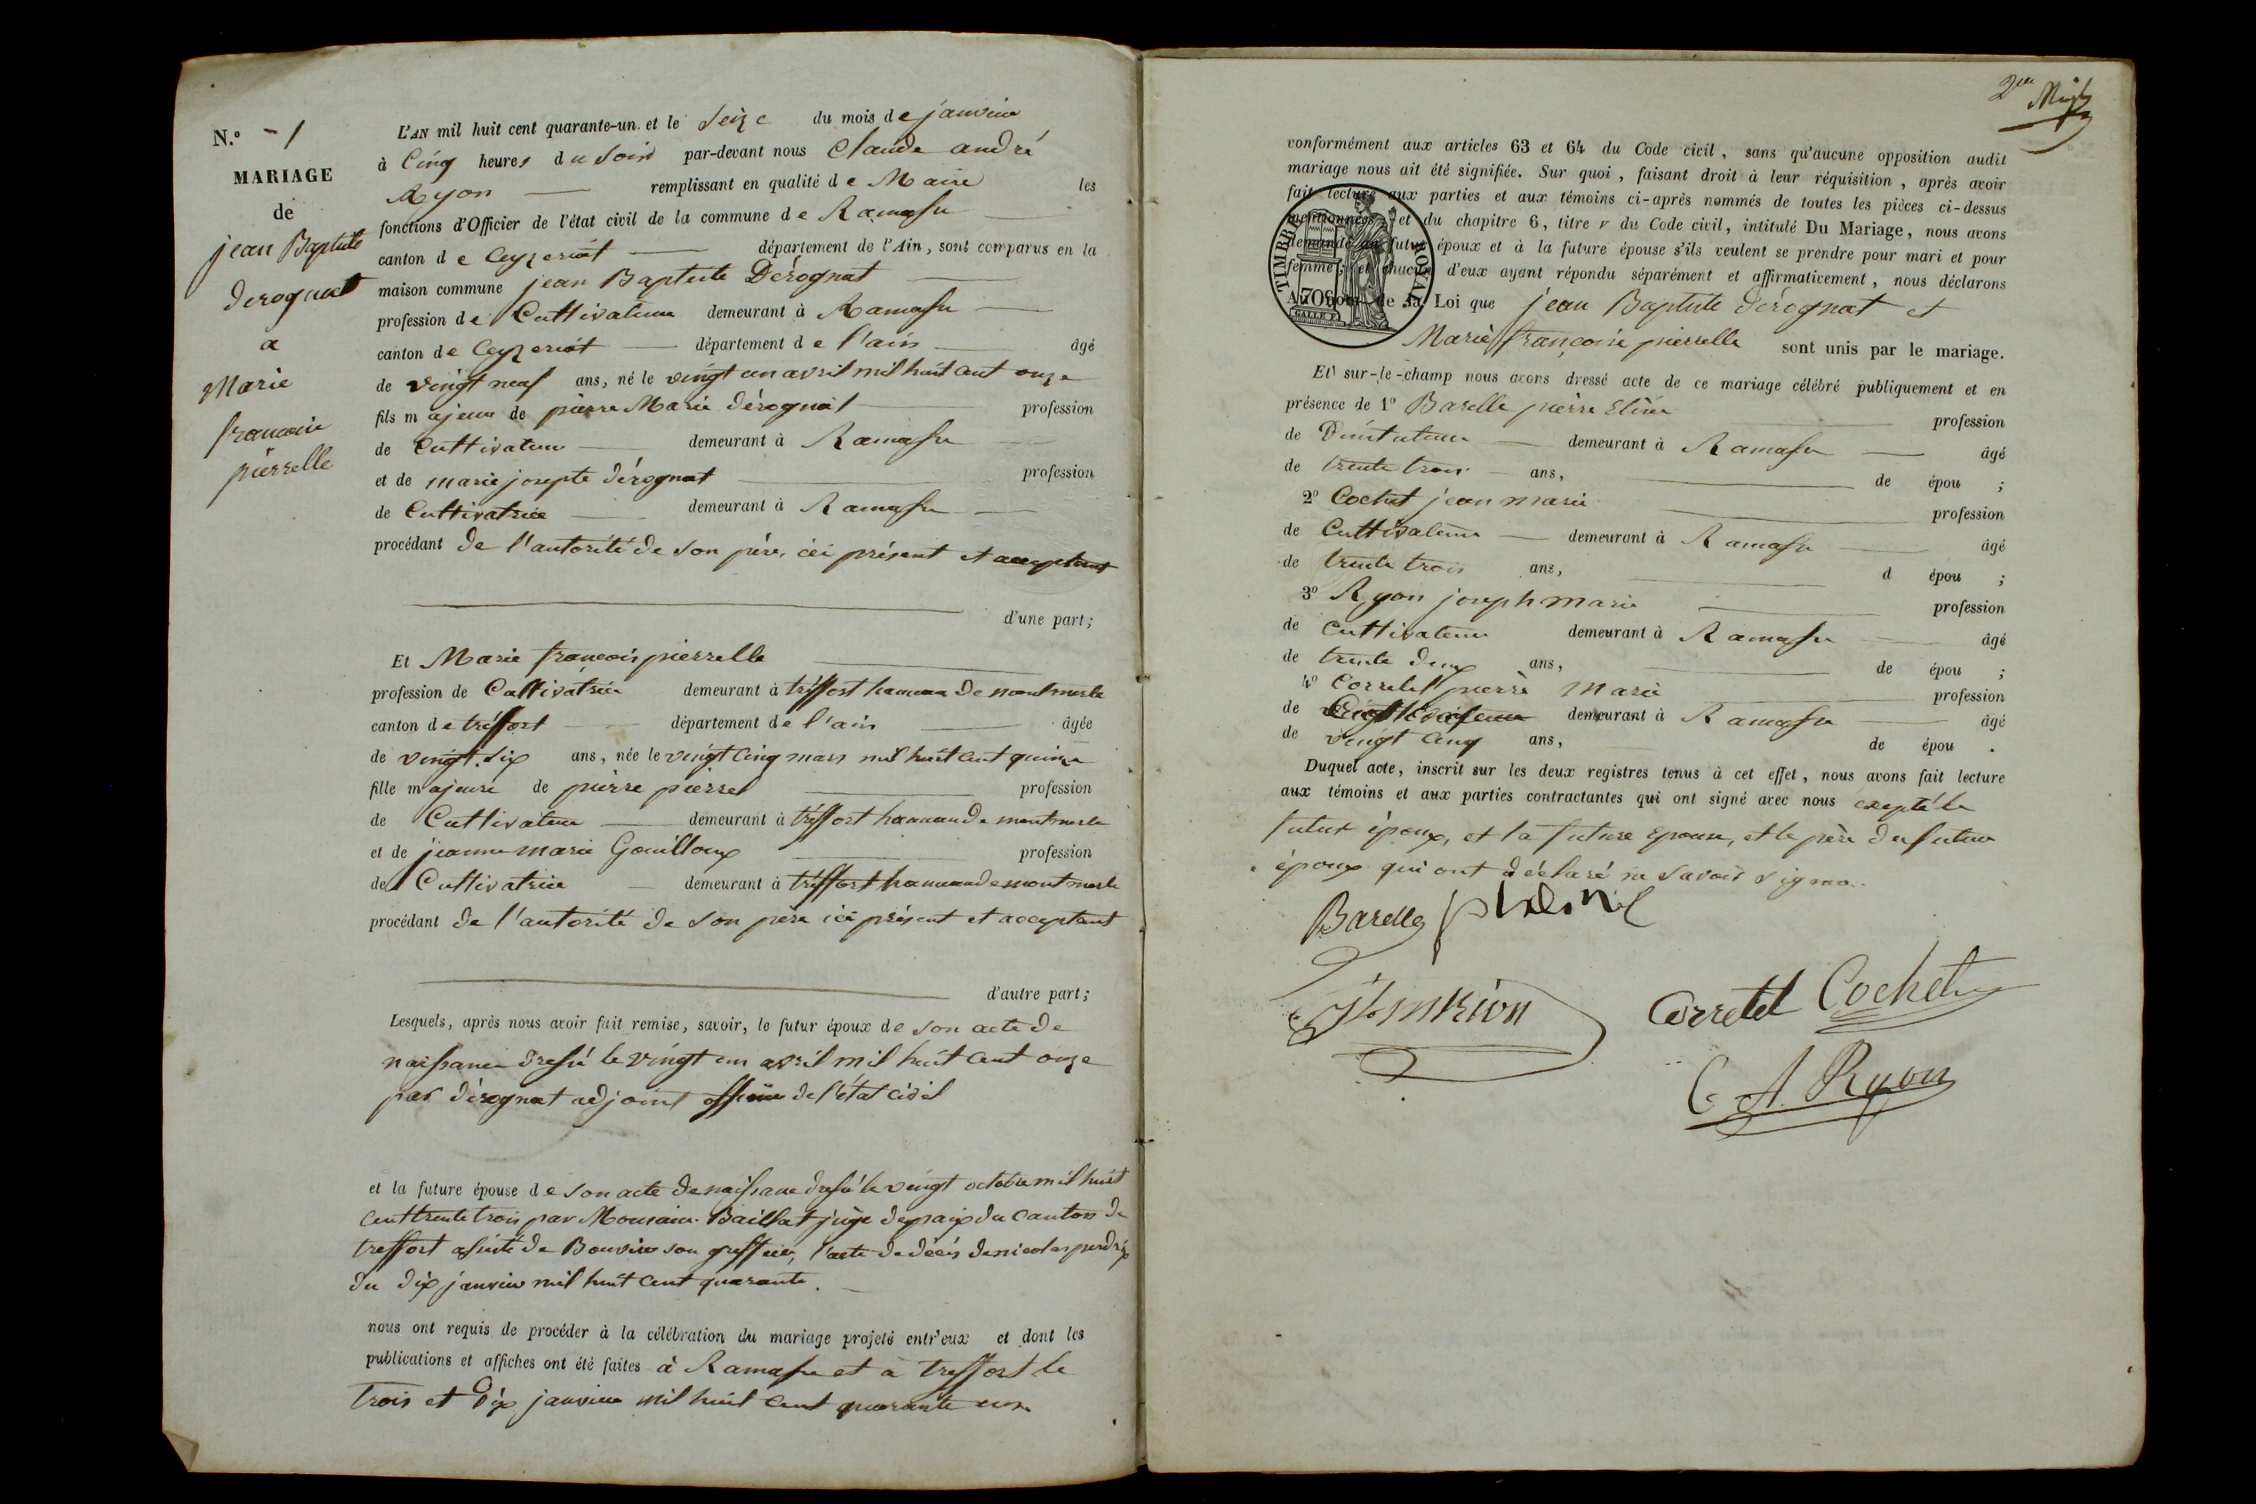 N.º - 1
MARIAGE
de
jean Baptiste
derognat
a
Marie
francoise
pierrelle
L'AN mil huit cent quarante-un et le seize du mois de janvier
à Cinq heures du soir par-devant nous Claude andré
Ryon remplissant en qualité de Maire les
fonctions d'Officier de l'état civil de la commune de Ramasse
canton de Ceyzeriat département de l'Ain, sont comparus en la
maison commune jean Baptiste Dérognat
profession de Cultivateur demeurant à Ramasse
canton de Ceyzeriat département de l'ain âgé
de vingt neuf ans, né le vingt un avril mil huit cent onze
fils majeur de pierre Marie dérognat profession
de Cultivateur demeurant à Ramasse
et de marie josepte dérognat profession
de Cultivatrice demeurant à Ramasse
procédant de l'autorité de son père, ici présent et acceptant
d'une part;
Et Marie françois pierrelle
profession de Cultivatrice demeurant à tréffort hameau de montmerle
canton de tréffort département de l'ain âgée
de vingt six ans, née le vingt cinq mars mil huit cent quinze
fille majeure de pierre pierrel profession
de Cultivateur demeurant à tréffort hameau de montmerle
et de jeanne marie Gouilloux profession
de Cultivatrice demeurant à tréffort hameau de montmerle
procédant de l'autorité de son père ici présent et acceptant
d'autre part;
Lesquels, après nous avoir fait remise, savoir, le futur époux de son acte de
naissance dressé le vingt un avril mil huit cent onze
par dérognat adjoint officier de l'état civil
et la future épouse de son acte de naissance dressé le vingt octobre mil huit
cent trente trois par Monsieur Baillat juge de paix du canton de
treffort assisté de Bouvier son greffier, l'acte de décès de nicolas perdrix
du dix janvier mil huit cent quarante.
nous ont requis de procéder à la célébration du mariage projeté entr'eux et dont les
publications et affiches ont été faites à Ramasse et à treffort le
trois et dix janvier mil huit cent quarante un
2me
vonformément aux articles 63 et 64 du Code civil, sans qu'aucune opposition audit
mariage nous ait été signifiée. Sur quoi, faisant droit à leur réquisition, après avoir
fait lecture aux parties et aux témoins ci-après nommés de toutes les pièces ci-dessus
mentionnées, et du chapitre 6, titre v du Code civil, intitulé Du Mariage, nous avons
demandé au futur époux et à la future épouse s'ils veulent se prendre pour mari et pour
femme; et chacun d'eux ayant répondu séparément et affirmativement, nous déclarons
Au nom de la Loi que jean Baptiste dérognat et
Marie françoise pierrelle sont unis par le mariage.
TIMBRE ROYAL
70c
Et sur-le-champ nous avons dressé acte de ce mariage célébré publiquement et en
présence de 1º Barelle pierre profession
de demeurant à Ramasse âgé
de trente trois ans, de épou ;
2º Cochet jean marie profession
de Cultivateur demeurant à Ramasse âgé
de trente trois ans, d épou ;
3º Ryon joseph marie profession
de cultivateur demeurant à Ramasse âgé
de trente deux ans, de épou ;
4º Corretel pierre marie profession
de demeurant à Ramasse âgé
de vingt cinq ans, de épou .
Duquel acte, inscrit sur les deux registres tenus à cet effet, nous avons fait lecture
aux témoins et aux parties contractantes qui ont signé avec nous excepté le
futur époux, et la future epouse, et le père du futur
époux qui ont déclaré ne savoir signer.
Barelle
Corretel Cochet
C A. Ryon